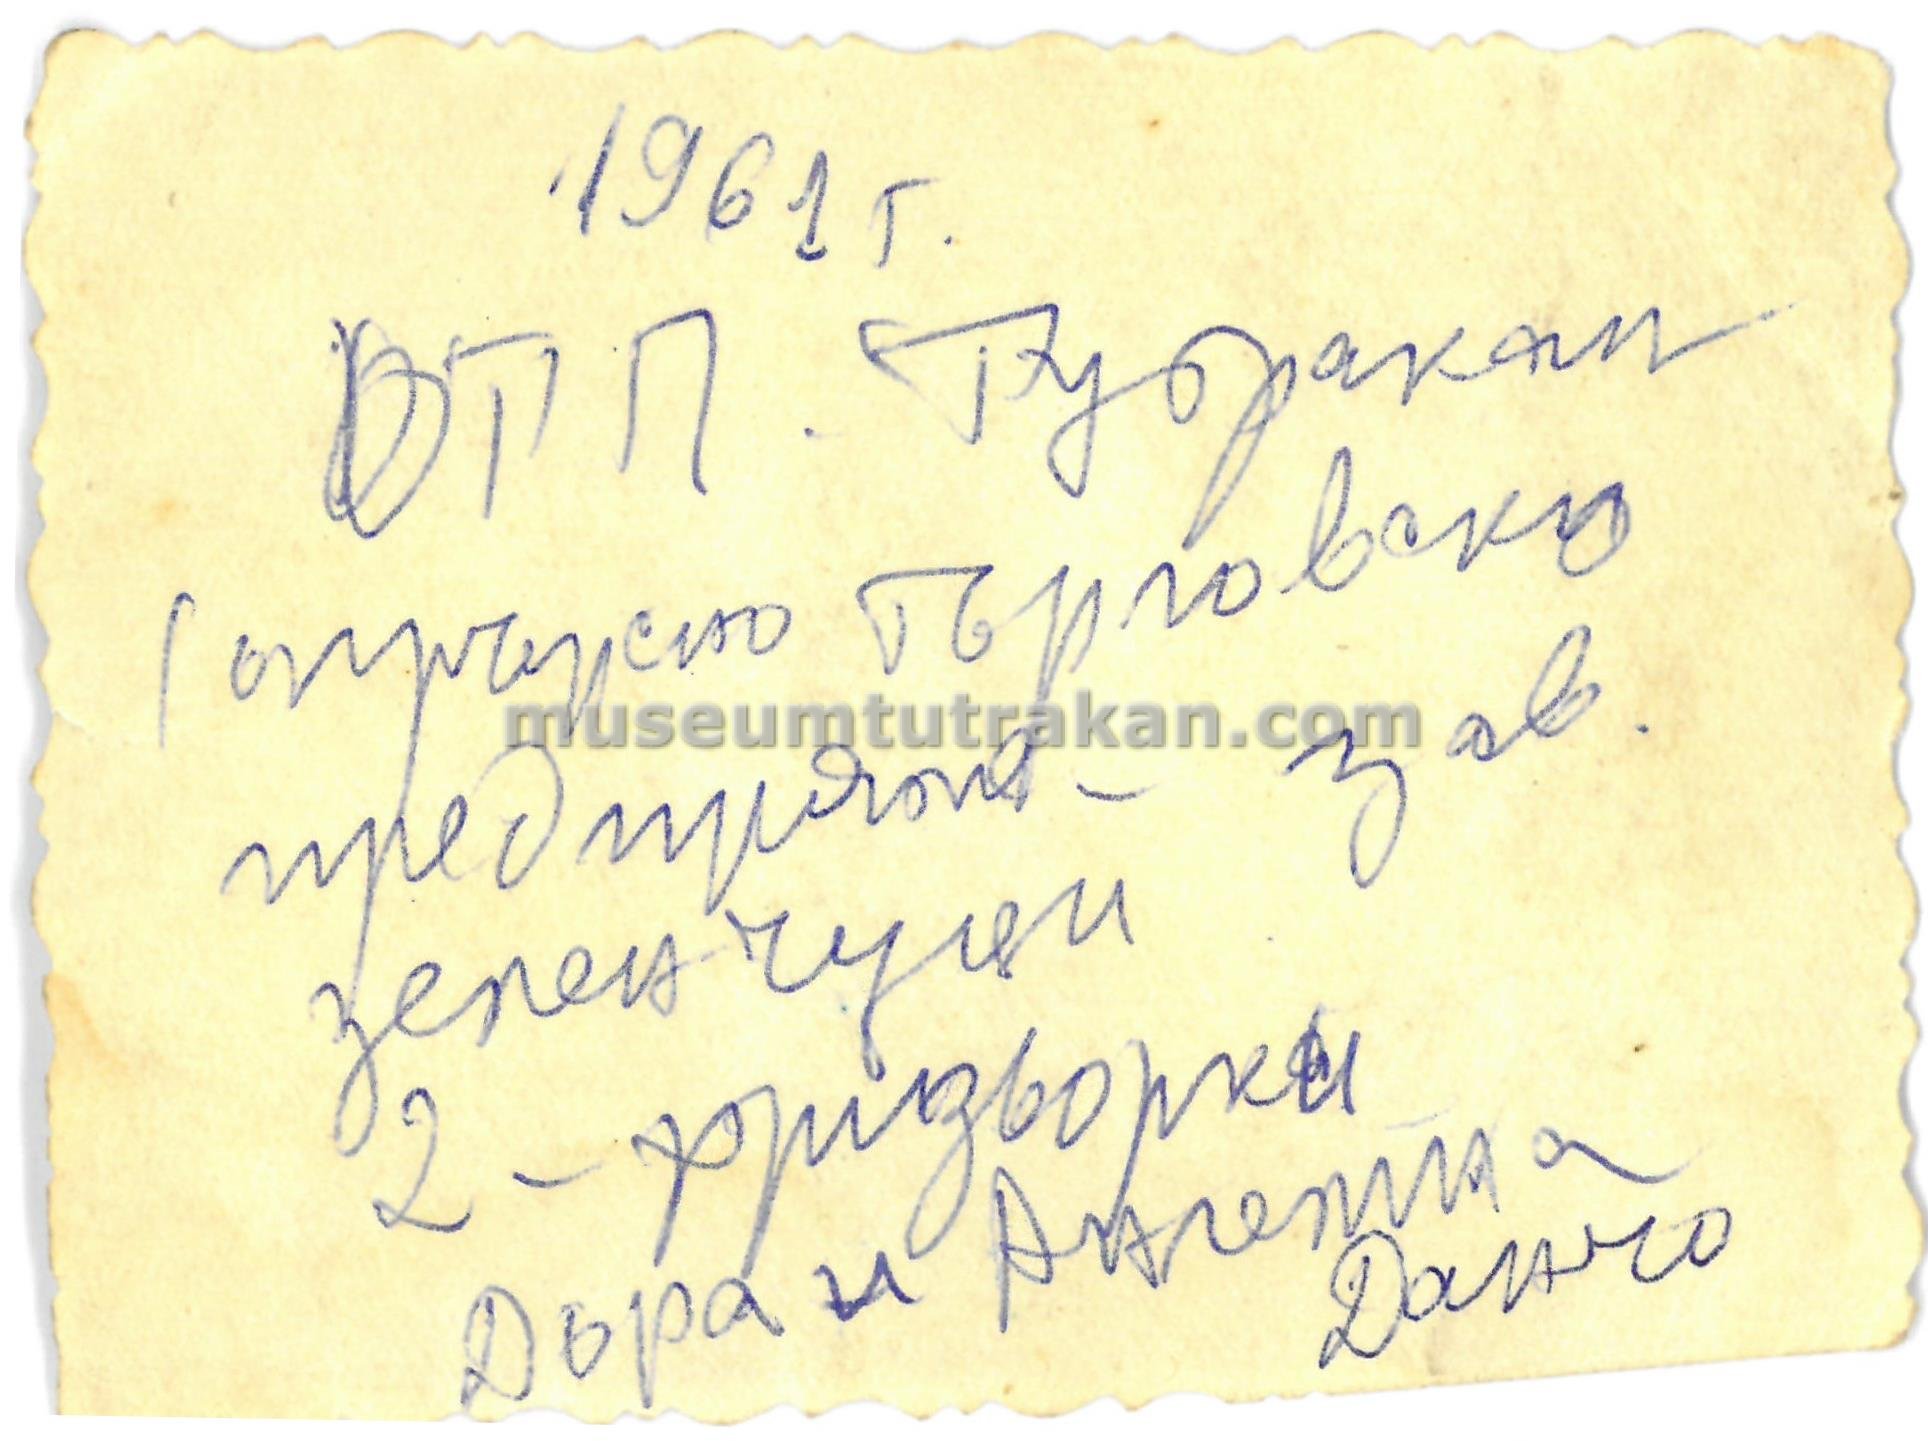 1961 г.
ОТП. Тутракан
търговско
museumtutrakan.com
предприятие - зав.
зеленчуци
2 -
Дора и Ангелина
Данчо